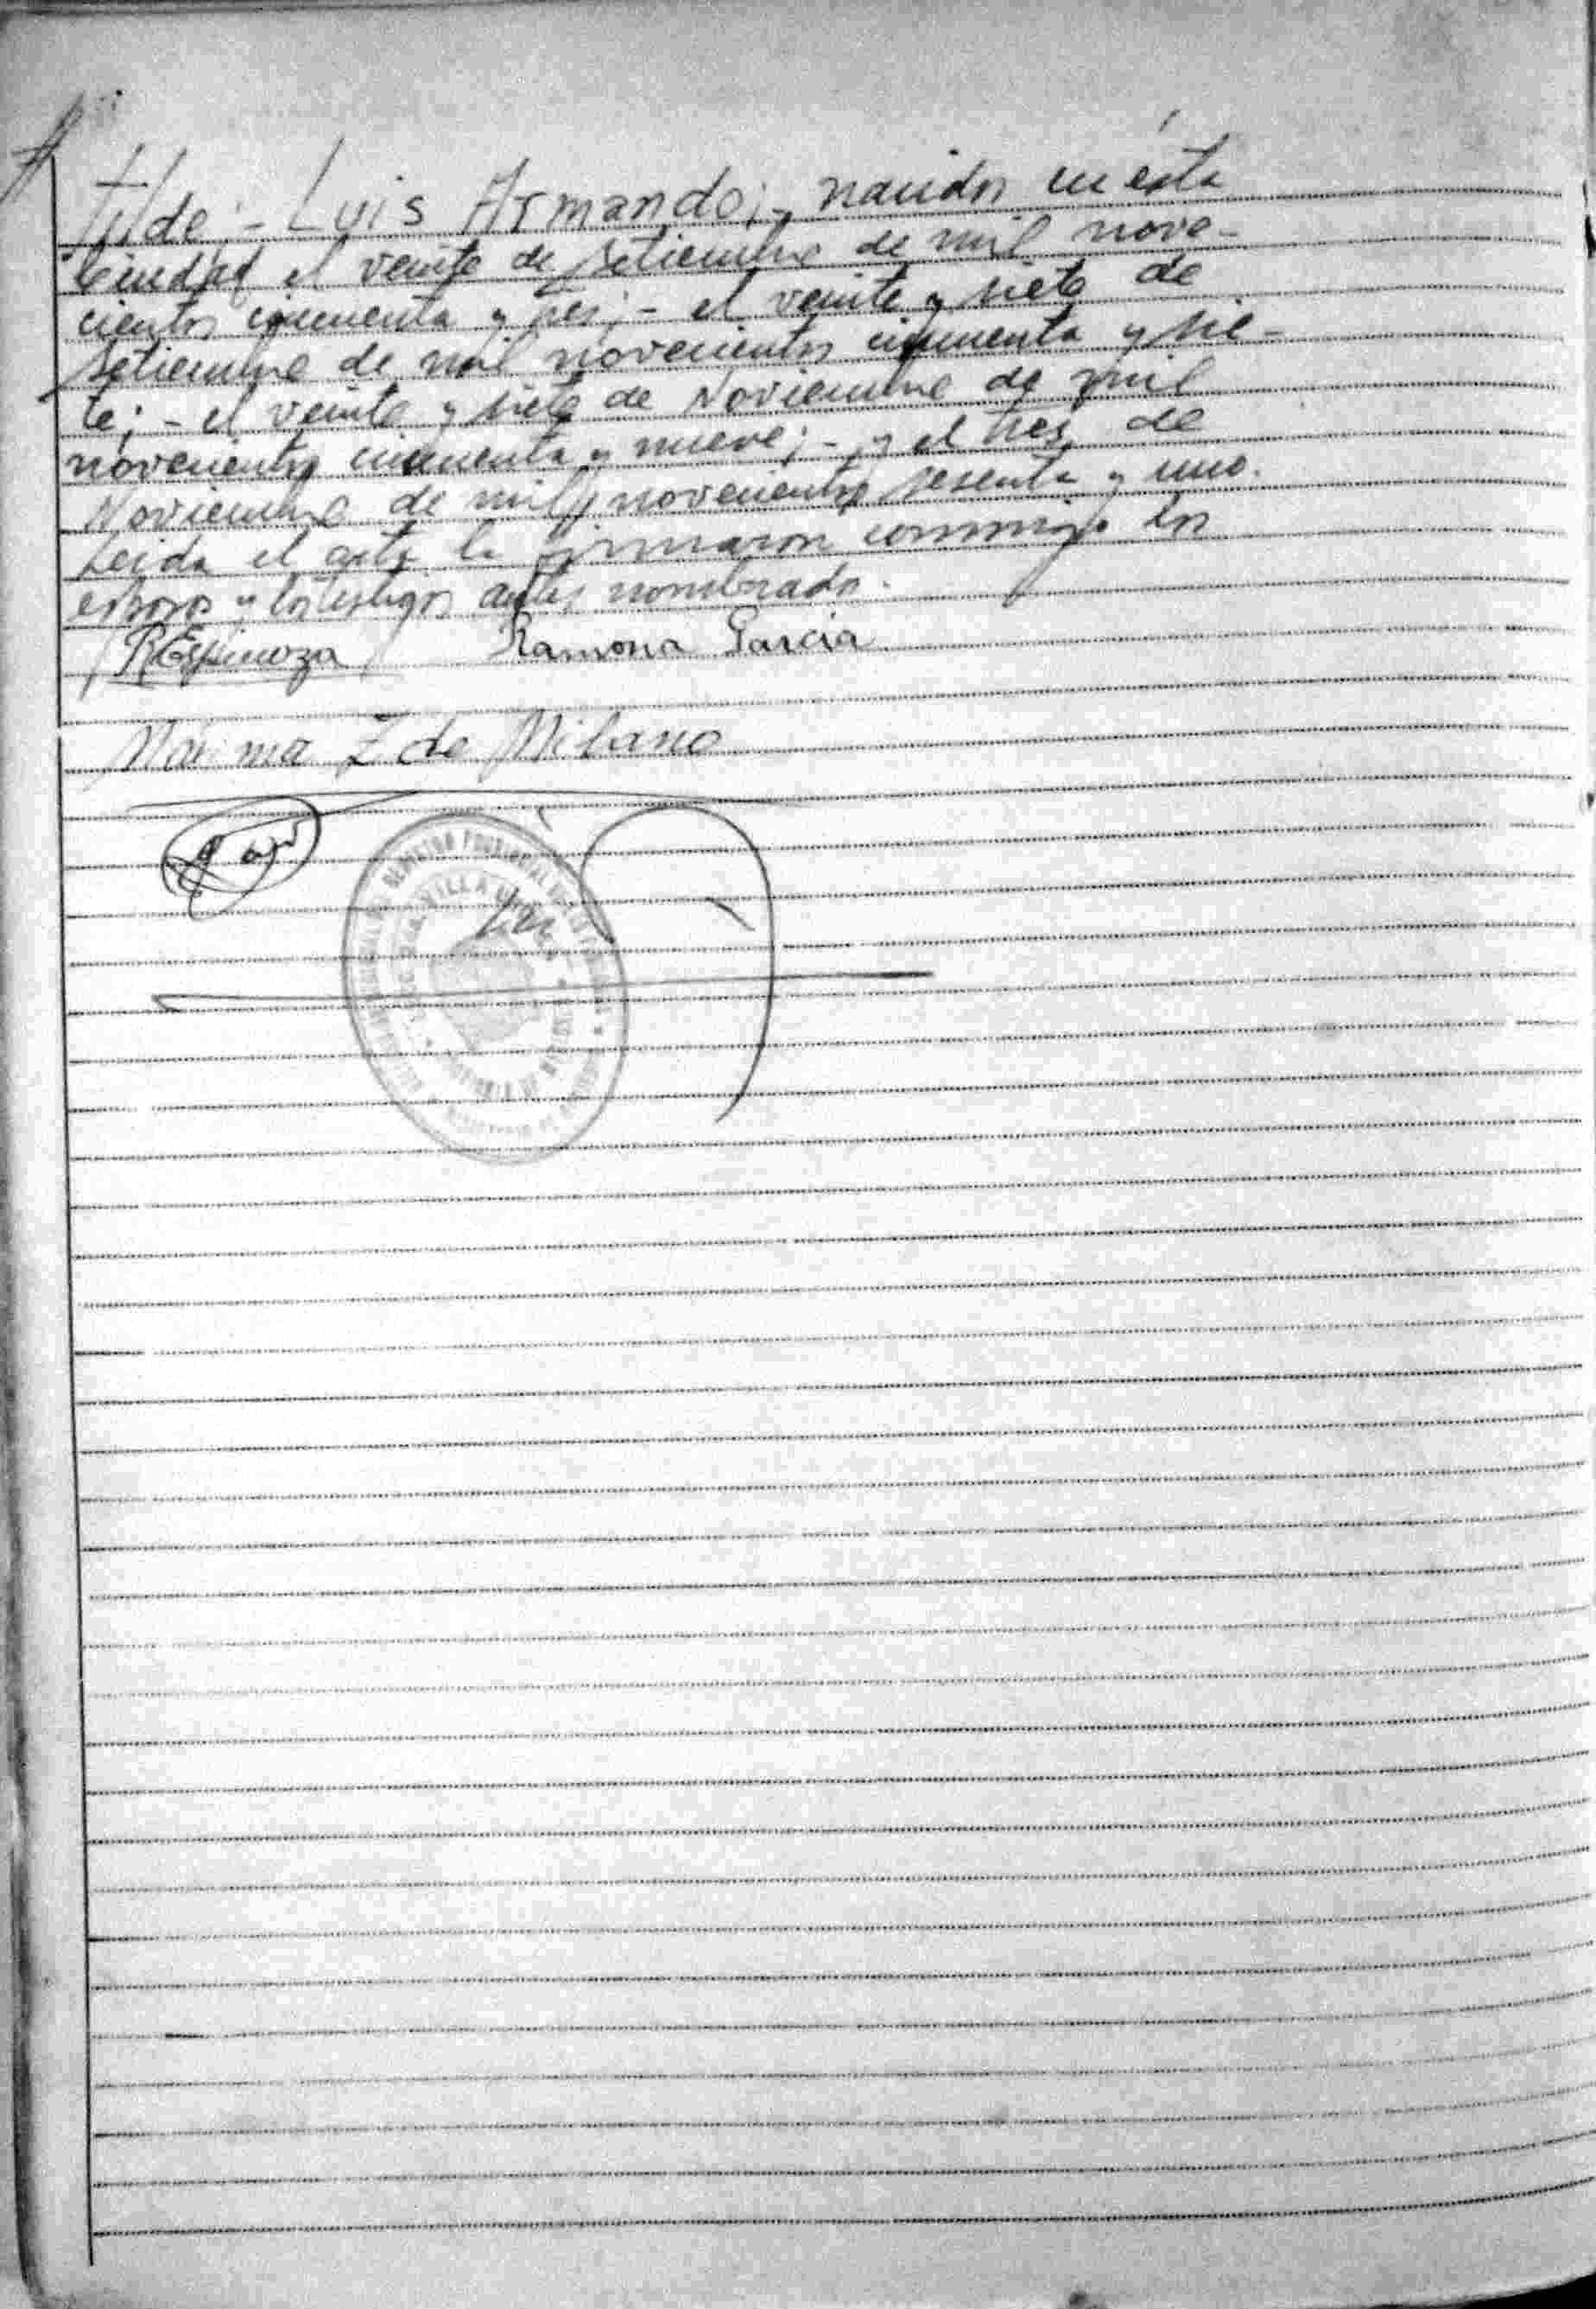 Tilde; - Luis Armando; - nacidos en ésta
Ciudad el veinte de Setiembre de mil nove-
cientos cincuenta y seis; - el veinte y siete de
Setiembre de mil novecientos cincuenta y sie-
te; - el veinte y siete de Noviembre de mil
novecientos cincuenta y nueve; - y el tres de
Noviembre de mil novecientos sesenta y uno.
Leida el acta la firmaron conmigo los
esposos y los testigos antes nombrado.
REspinoza Ramona Garcia
Máxima Z de Milano
VILLA